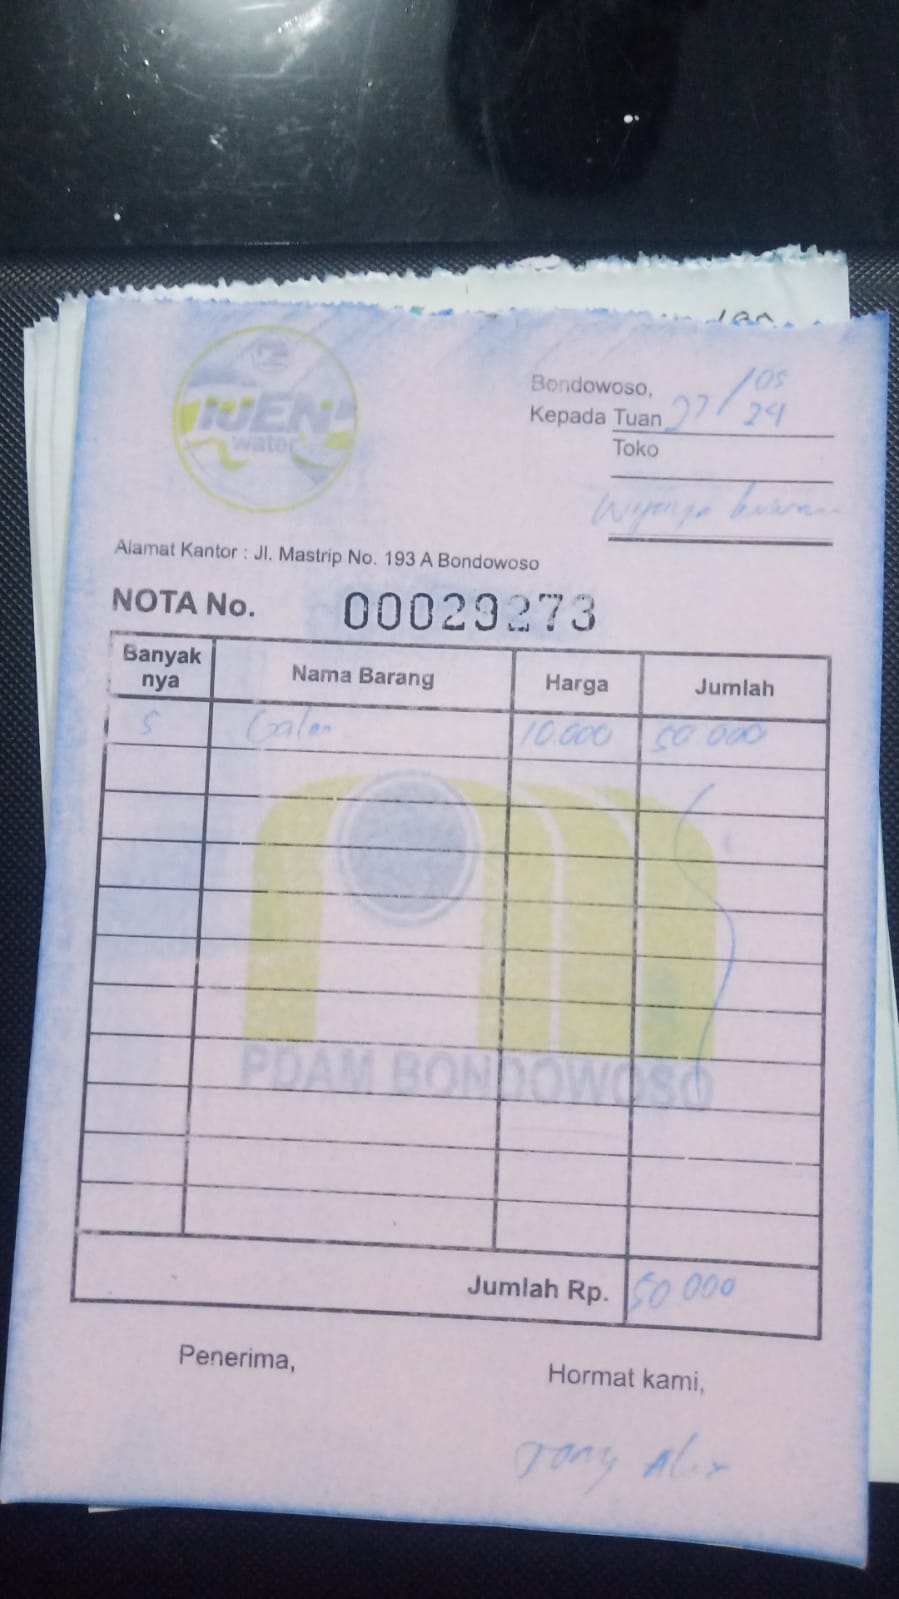 IJEN
water
Bondowoso, 27/05
Kepada Tuan 24
Toko
Alamat Kantor : Jl. Mastrip No. 193 A Bondowoso
NOTA No. 00029273
Banyak nya Nama Barang Harga Jumlah
5 Galon 10.000 50.000
PDAM BONDOWOSO
Jumlah Rp. 50.000
Penerima, Hormat kami,
Tony